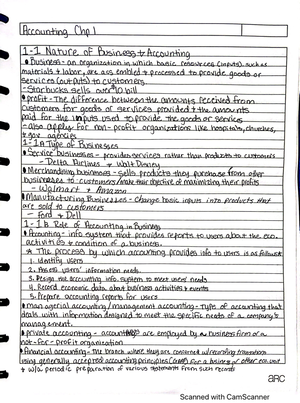 Accounting Chp 1
1-1 Nature of Business & Accounting
Business - an organization in which basic resources (inputs), such as
materials & labor, are assembled & processed to provide goods or
services (outputs) to customers
- Starbucks sells over $10 bill
profit - The difference between the amounts received from
customers for goods or services provided & the amounts
paid for the inputs used to provide the goods or services
- also apply for non-profit organizations like hospitals, churches,
& gov agencies
1-1a Type of Businesses
Service businesses - provides services rather than products to customers
- Delta Airlines & Walt Disney
Merchandising businesses - sells products they purchase from other
businesses to customers / objective of maximizing their profits
- Walmart & Amazon
Manufacturing Businesses - change basic inputs into products that
are sold to customers
- Ford & Dell
1-1b Role of Accounting in Business
Accounting - info system that provides reports to users about the eco.
activities & condition of a business.
* The process by which accounting provides info to users is as follows
1. Identify users
2. Assess users' information needs
3. Design the accounting info system to meet users' needs
4. Record economic data about business activities & events
5. Prepare accounting reports for users
managerial accounting / management accounting - type of accounting that
deals with information designed to meet the specific needs of a company's
management.
private accounting - are employed by a business firm or a
not-for-profit organization
financial accounting - The branch where they are concerned w/ recording transactions
using generally accepted accounting principles (GAAP) for a business or other eco. unit
& w/a periodic preparation of various statements from such records
arc
Scanned with CamScanner